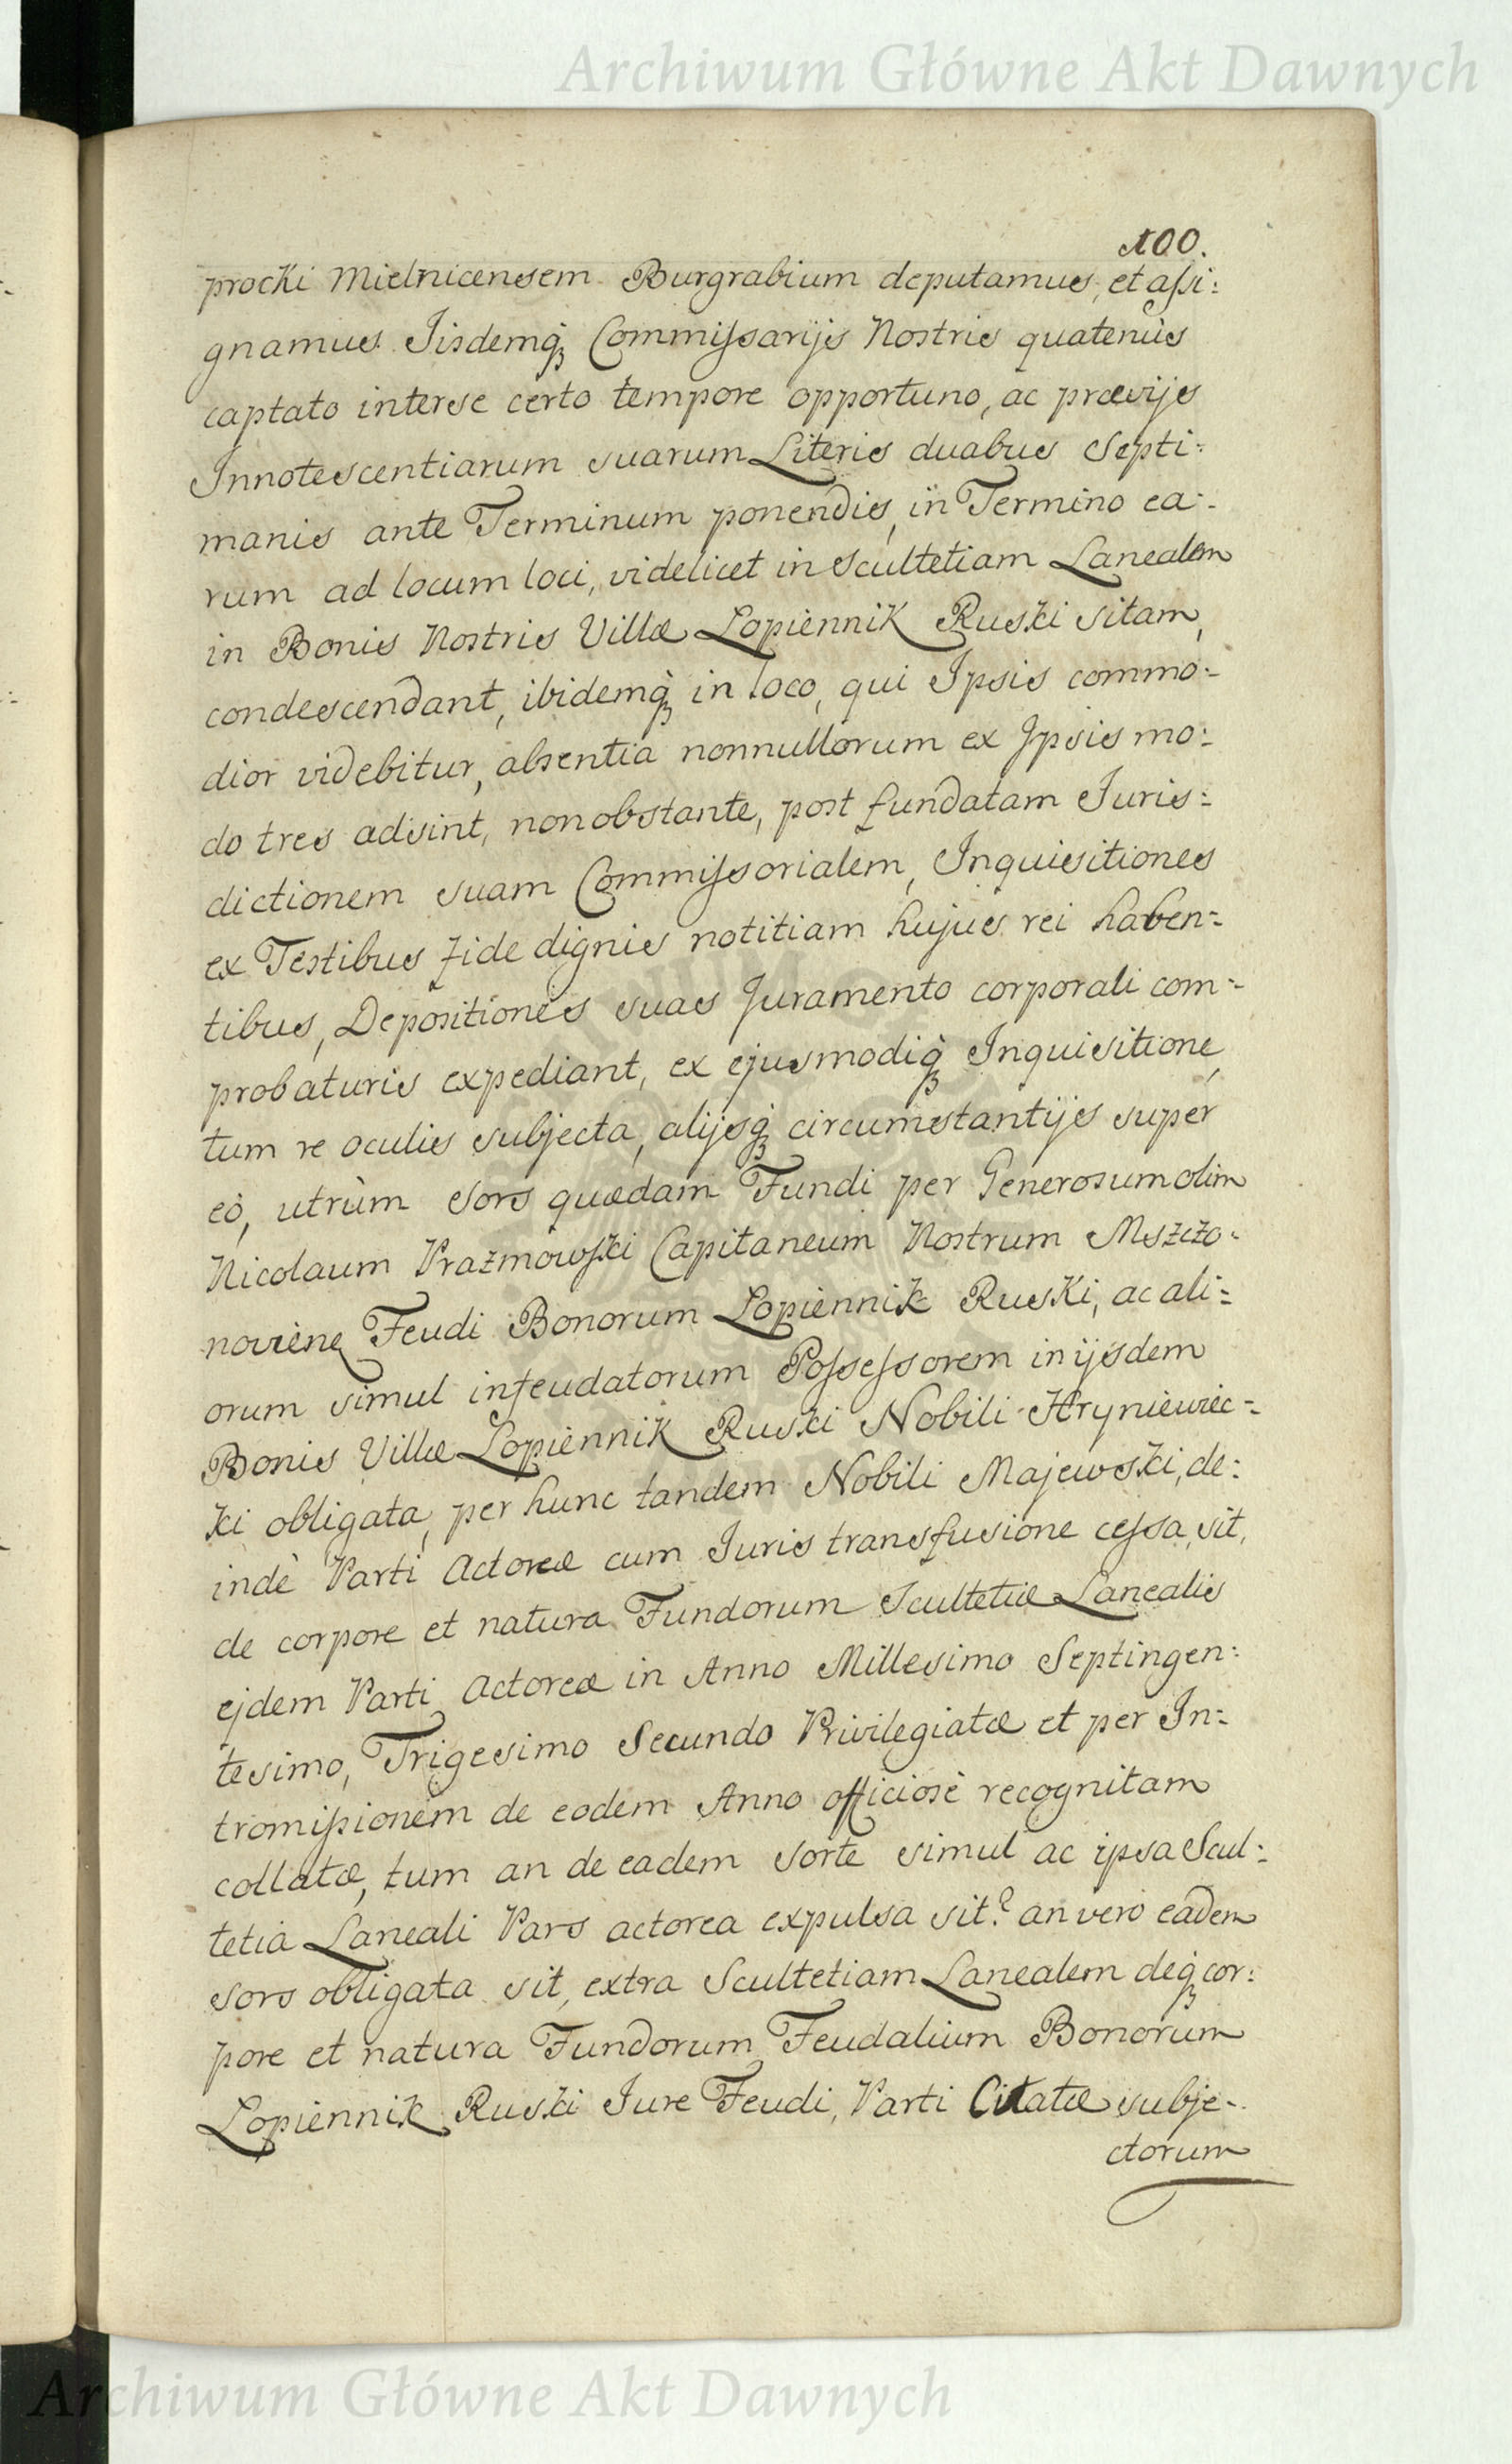 Archiwum Główne Akt Dawnych
100.
procki Mielnicensem Burgrabium deputamus, et aſsi:
gnamus. Iisdemqꝫ Commiſsarijs Nostris quatenùs
captato interse certo tempore opportuno, ac prævijs
Innotescentiarum suarum Literis duabus Septi:
manis ante Terminum ponendis, in Termino ea:
rum ad locum loci, videlicet in Scultetiam Lanealem
in Bonis Nostris Villæ Lopiennik Ruski sitam,
condescendant, ibidemqꝫ in loco, qui Ipsis commo:
dior videbitur, absentia nonnullorum ex Ipsis mo:
do tres adsint, nonobstante, post fundatam Juris:
dictionem suam Commiſsorialem, Inquisitiones
ex Testibus fide dignis notitiam hujus rei haben:
tibus, Depositiones suas Juramento corporali com:
probaturis expediant, ex ejusmodiqꝫ Inquisitione,
tum re oculis subjecta, alijsqꝫ circumstantijs super
eò, utrùm Sors quædam Fundi per Generosum olim
Nicolaum Prazmowski Capitaneum Nostrum Mszczo:
noviēnę Feudi Bonorum Lopiennik Ruski, ac ali:
orum simul infeudatorum Poſseſsorem in ijsdem
Bonis Villæ Lopiennik Ruski Nobili Hryniewiec:
ki obligata, per hunc tandem Nobili Majewski, de:
indè Parti Actoreæ cum Iuris transfusione ceſsa, sit,
de corpore et natura Fundorum Scultetiæ Lanealis
ejdem Parti Actoreæ in Anno Millesimo Septingen:
tesimo, Trigesimo Secundo Privilegiatæ et per In:
tromiſsionem de eodem Anno officiosè recognitam
collatæ, tum an de eadem Sorte simul ac ipsa Scul:
tetia Laneali Pars actorea expulsa sit? an verò eadem
Sors obligata sit, extra Scultetiam Lanealem deqꝫ cor:
pore et natura Fundorum Feudalium Bonorum
Lopiennik Ruski Iure Feudi, Parti Citatæ subje:
ctorum
Archiwum Główne Akt Dawnych